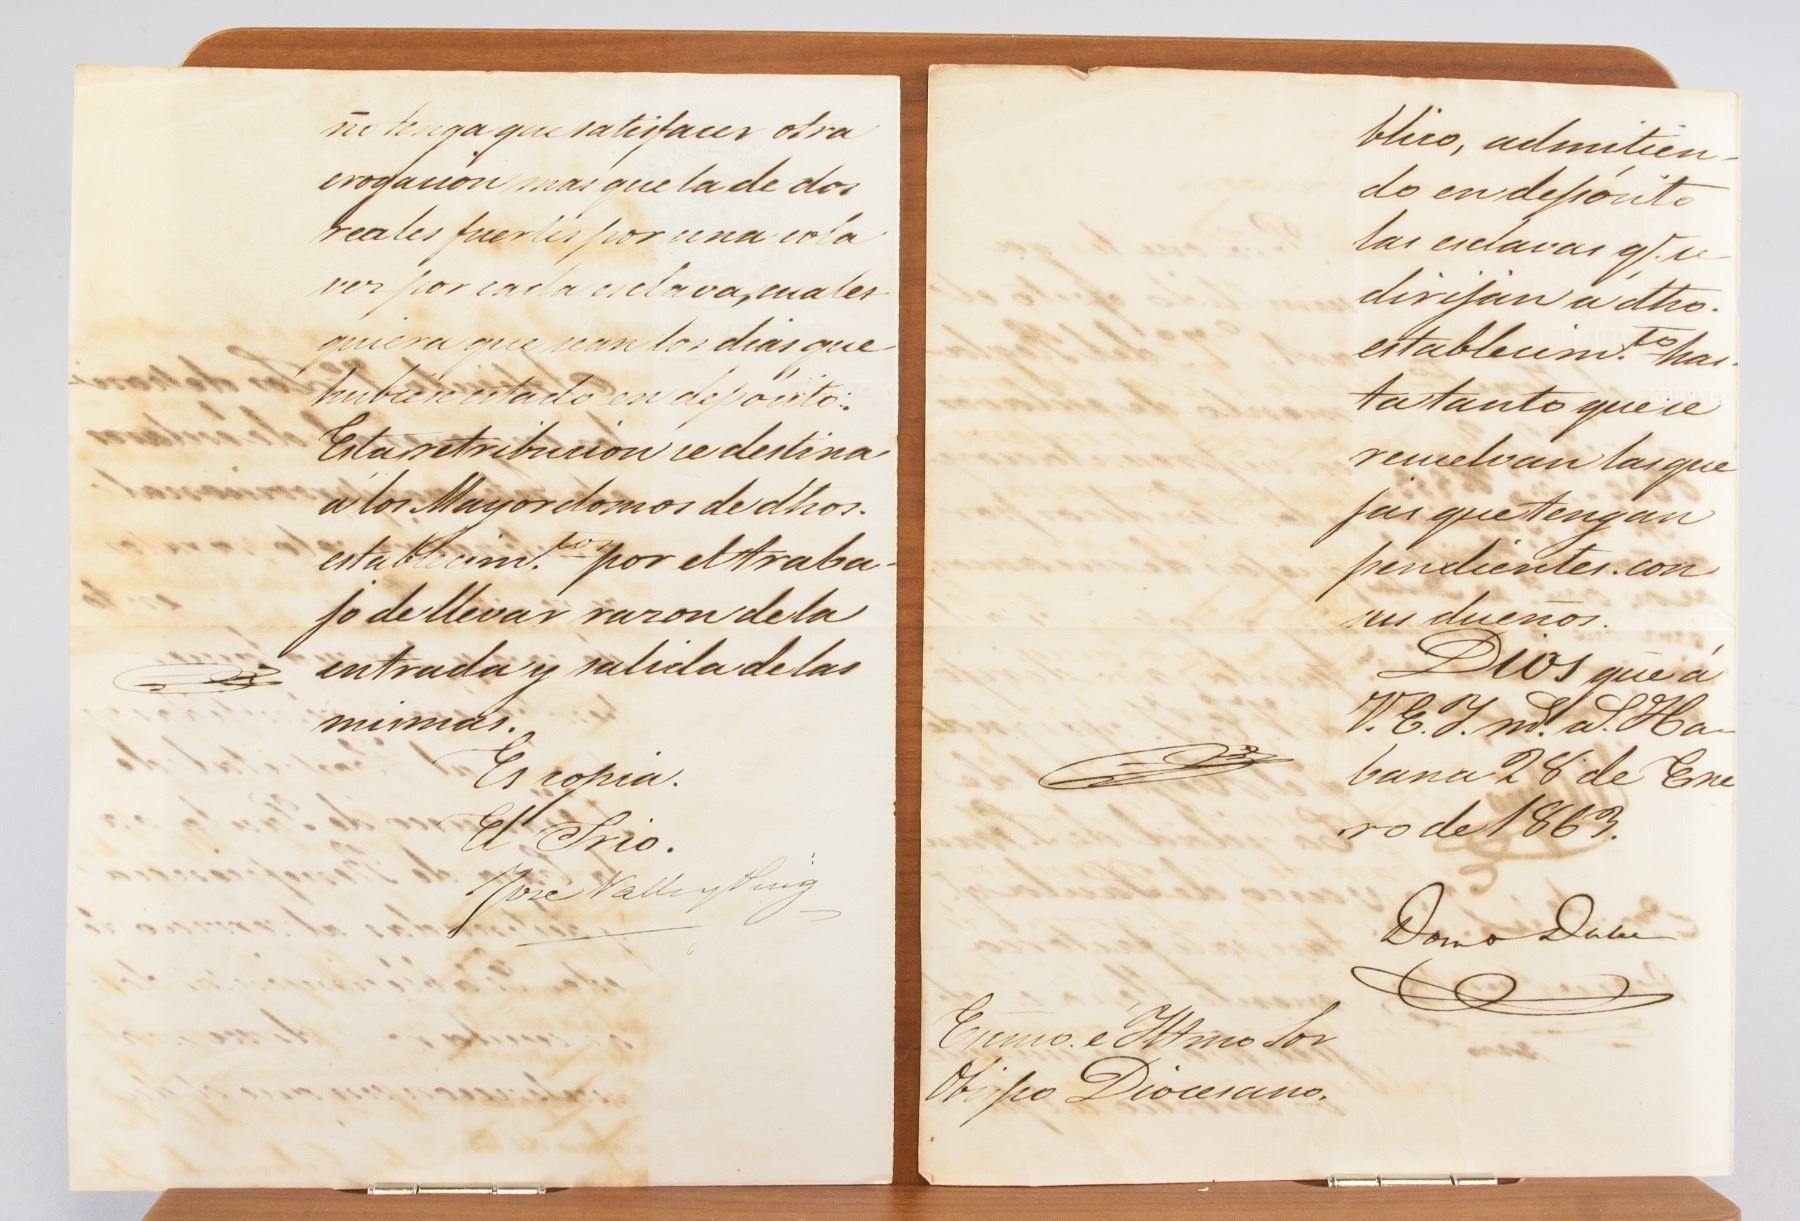 ño tenga que satisfacer otra
erogacion mas que la de dos
reales fuertes por una sola
vez por cada esclava, cuales
quiera que sean los dias que
hubiere estado en depósito.
Esta retribucion se destina
á los Mayordomos de dhos.
establecim.tos por el traba-
jo de llevar razon de la
entrada y salida de las
mismas.
Es copia.
El Srio.
Jose Valls y Puig
blico, admitien-
do en depósito
las esclavas q.e se
dirijan á dho.
establecim.to has-
ta tanto que se
resuelvan las que
jas que tengan
pendientes con
sus dueños.
Dios gue á
V. E. I. ms. as. Ha-
bana 28 de Ene
ro de 1863.
Domo Dulce
Exmo. é Iltmo Sor
Obispo Diocesano.